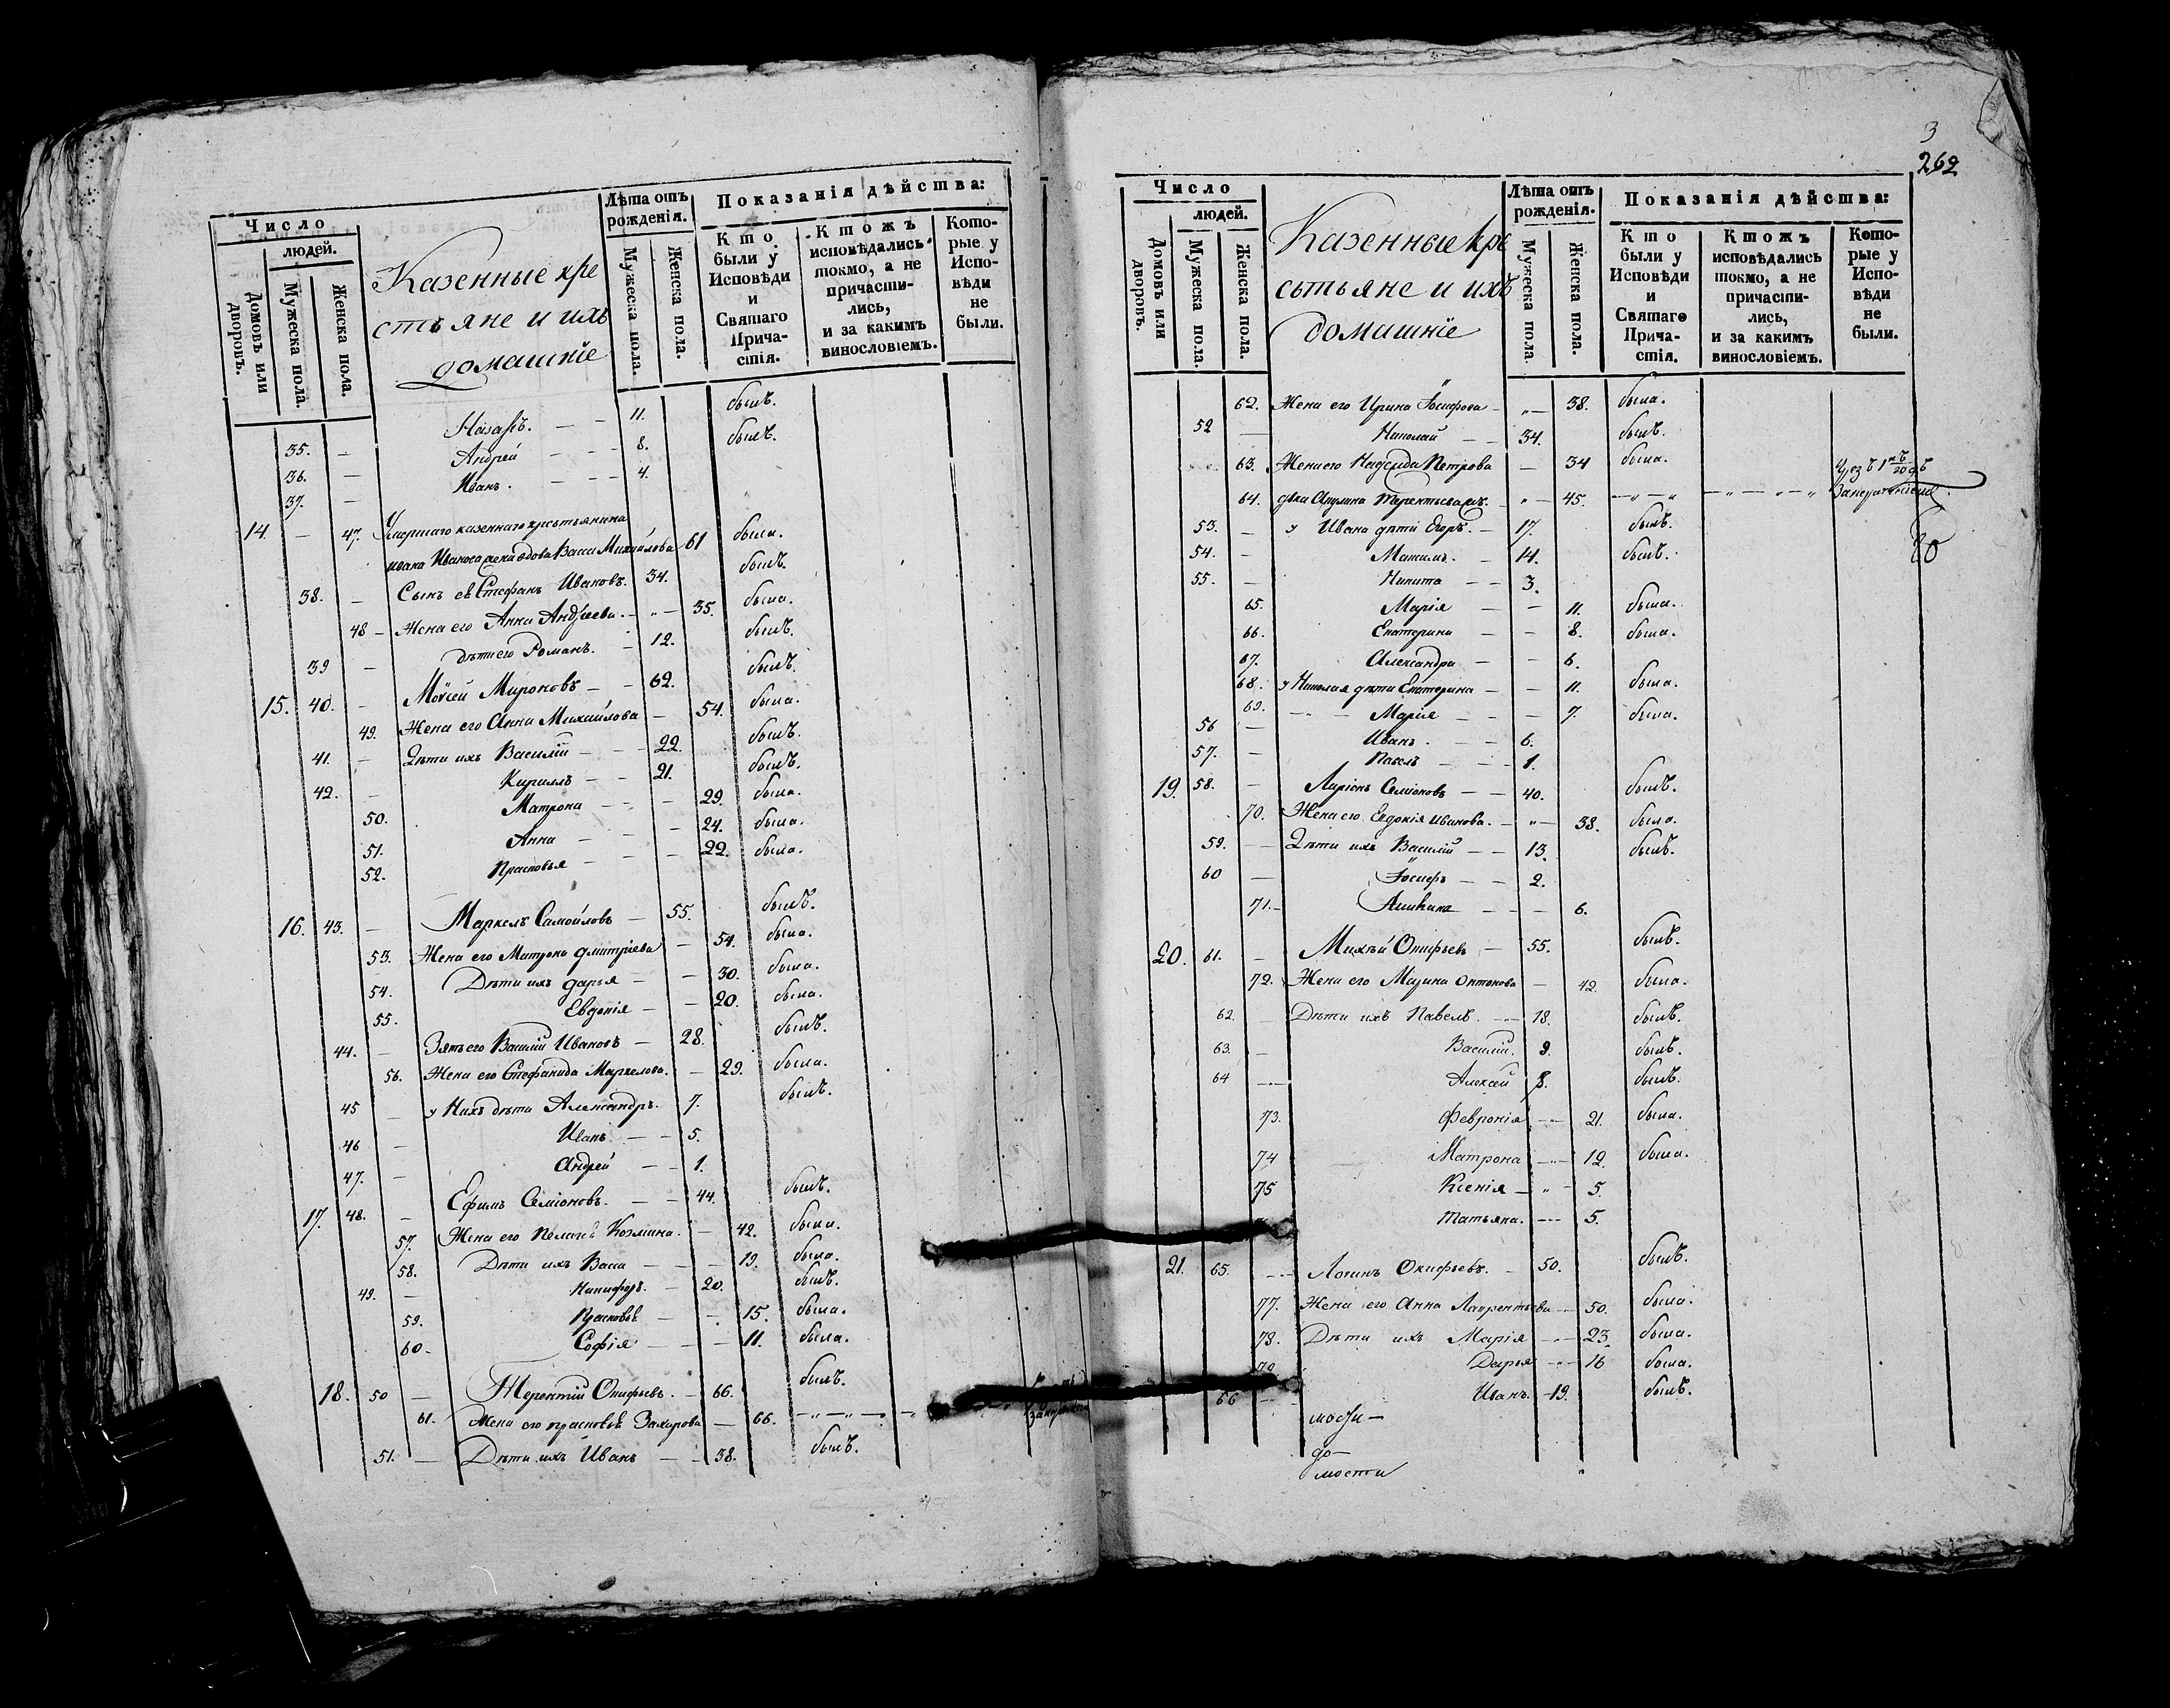 Число
людей.
Домовъ или дворовъ.
Мужеска пола.
Женска пола.
Казенные кре
стьяне и ихъ
домашнїе
Лѣта отъ рожденія.
Мужеска пола.
Женска пола.
Показанія дѣйства:
Кто были у Исповѣди и Святаго Причастія.
Ктожъ исповѣдались токмо, а не причастились, и за какимъ винословіемъ.
Которые у Исповѣди не были.
35. — Назаръ. — — 11. былъ.
36. — Андрей — — 8. былъ.
37. — Иванъ. — — 4.
14. — 47. Умершаго казеннаго крестьянина
Ивана Иванова жена вдова Васса Михайлова 61 была.
38. — Сынъ еѣ Стефанъ Ивановъ. 34. былъ.
48 — Жена его Анна Андреева. — 35. была.
39 — дѣти его Романъ. — 12. былъ.
15. 40. — Моѵсей Мироновъ — — 62. былъ.
49. Жена его Анна Михайлова — 54. была.
41. — Дѣти ихъ Василій — — 22. былъ.
42. — Кириллъ — — 21. былъ.
50. Матрона — — — 29. была.
51. Анна — — — 24. была.
52. Прасковья — — — 22. была.
16. 43. — Маркелъ Самойловъ — 55. былъ.
53. Жена его Матрона Дмитріева — 54. была.
54. Дѣти ихъ Дарья — — 30. была.
55. Евдокія — — 20. была.
44. — Зять его Василій Ивановъ — 28. былъ.
56. Жена его Стефанида Маркелова. — 29. была.
45 — у Нихъ дѣти Александръ. 7. былъ.
46 — Иванъ — — 5.
47. — Андрей — — 1.
17. 48. — Ефимъ Семіоновъ. — — 44. былъ.
57. Жена его Пелагѣ Козмина. — 42. была.
58. Дѣти ихъ Васса — — — 19. была.
49. — Никифоръ. — 20. былъ.
59. Прасковья — — 15. была.
60. Софія — — — 11. была.
18. 50 — Терентій Онифьевъ. — 66. былъ.
61. Жена его прасковья Захарова — 66.
51. — Дѣти ихъ Иванъ — — 38. былъ.
3
262
Число
людей.
Домовъ или дворовъ.
Мужеска пола.
Женска пола.
Казенные кре
сьтьяне и ихъ
домашнїе
Лѣта отъ рожденія.
Мужеска пола.
Женска пола.
Показанія дѣйства:
Кто были у Исповѣди и Святаго Причастія.
Ктожъ исповѣдались токмо, а не причастились, и за какимъ винословіемъ.
Которые у Исповѣди не были.
62. Жена его Ирина Іосифова — „— 38. была.
52 — Николай — — 34. былъ.
63. Жена его Надежда Петрова — 34 была.
64. дѣва Акулина Терентьева „ — 45. —„—„ —„—„—„
53. — у Ивана дѣти Егоръ. — 17. былъ.
54. — Максимъ. — 14. былъ.
55. — Никита — — 3.
65. Марія — — 11. была.
66. Екатерина — — 8. была.
67. Александра — — 6.
68. у Николая дѣти Екатерина — — 11. была.
69. Марія — — — 7. была.
56 — Иванъ. — — 6.
57. — Павелъ — — 1.
19. 58. — Ларіонъ Семіоновъ — — 40. былъ.
70. Жена его Евдокія иванова. — „— 38. была.
59. — Дѣти ихъ Василій — — 13. былъ.
60 — Іосифъ — — 2.
71. — Акилина — — — 6.
20. 61. — Михѣй Онифьевъ — 55. былъ.
72. Жена его Марина Онтонова — 42. была.
62. — Дѣти ихъ Павелъ. — 18. былъ.
63. — Василій. 9. былъ.
64 — Алексей 8. былъ.
73. Февронія — 21. была.
74 Матрона — 12. была.
75 Ксенія — „ — 5.
Татьяна. — 5.
21. 65. — Логинъ Онифьевъ. — 50. былъ.
77. Жена его Анна Лаврентьева — 50. была.
78. Дѣти ихъ Марія — 23. была.
79 Дарья — 16 была.
66 — Иванъ. — 19. былъ.
до—
мости